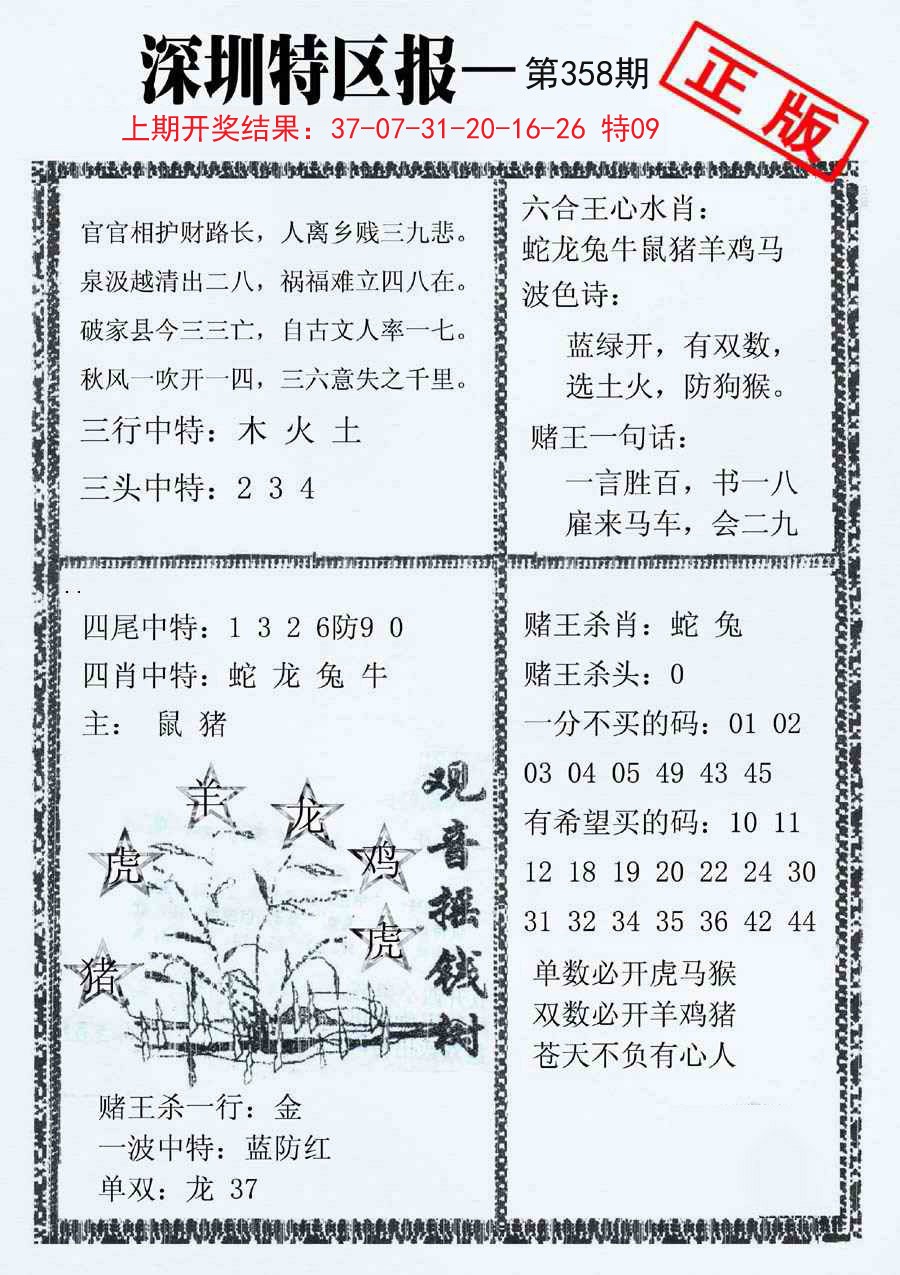 深圳特区报—第358期
正版
上期开奖结果：37-07-31-20-16-26 特09
官官相护财路长，人离乡贱三九悲。
泉汲越清出二八，祸福难立四八在。
破家县今三三亡，自古文人率一七。
秋风一吹开一四，三六意失之千里。
三行中特：木 火 土
三头中特：2 3 4
六合王心水肖：
蛇龙兔牛鼠猪羊鸡马
波色诗：
蓝绿开，有双数，
选土火，防狗猴。
赌王一句话：
一言胜百，书一八
雇来马车，会二九
四尾中特：1 3 2 6防9 0
四肖中特：蛇 龙 兔 牛
主： 鼠 猪
羊
龙
虎
鸡
虎
猪
观音摇钱树
赌王杀一行：金
一波中特：蓝防红
单双：龙 37
赌王杀肖：蛇 兔
赌王杀头：0
一分不买的码：01 02
03 04 05 49 43 45
有希望买的码：10 11
12 18 19 20 22 24 30
31 32 34 35 36 42 44
单数必开虎马猴
双数必开羊鸡猪
苍天不负有心人